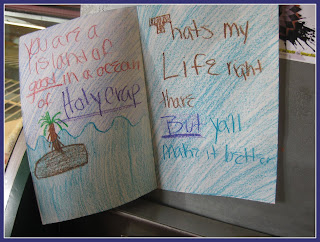 you are a
island of
good in a ocean
of Holy Crap
Thats my
LiFe right
thare
But ya'll
make it better